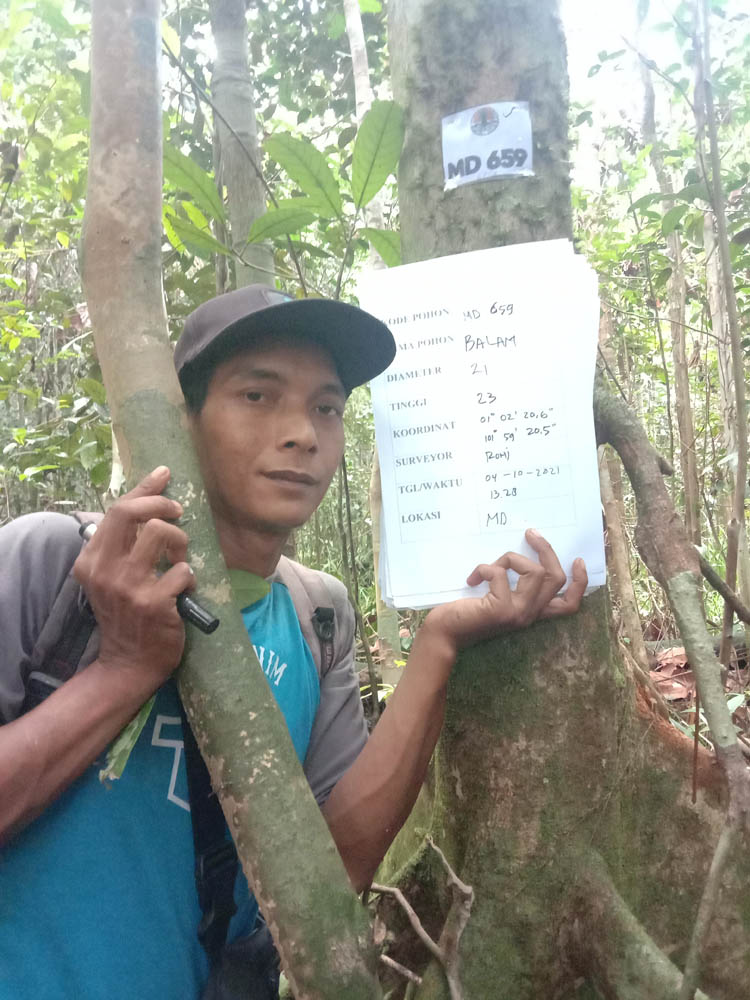 MD 659
KODE POHON MD 659
AMA POHON BALAM
DIAMETER 21
TINGGI 23
KOORDINAT 01° 02' 20,6"
101° 59' 20.5"
SURVEYOR ROMJ
TGL/WAKTU 04-10-2021
13.28
LOKASI MD